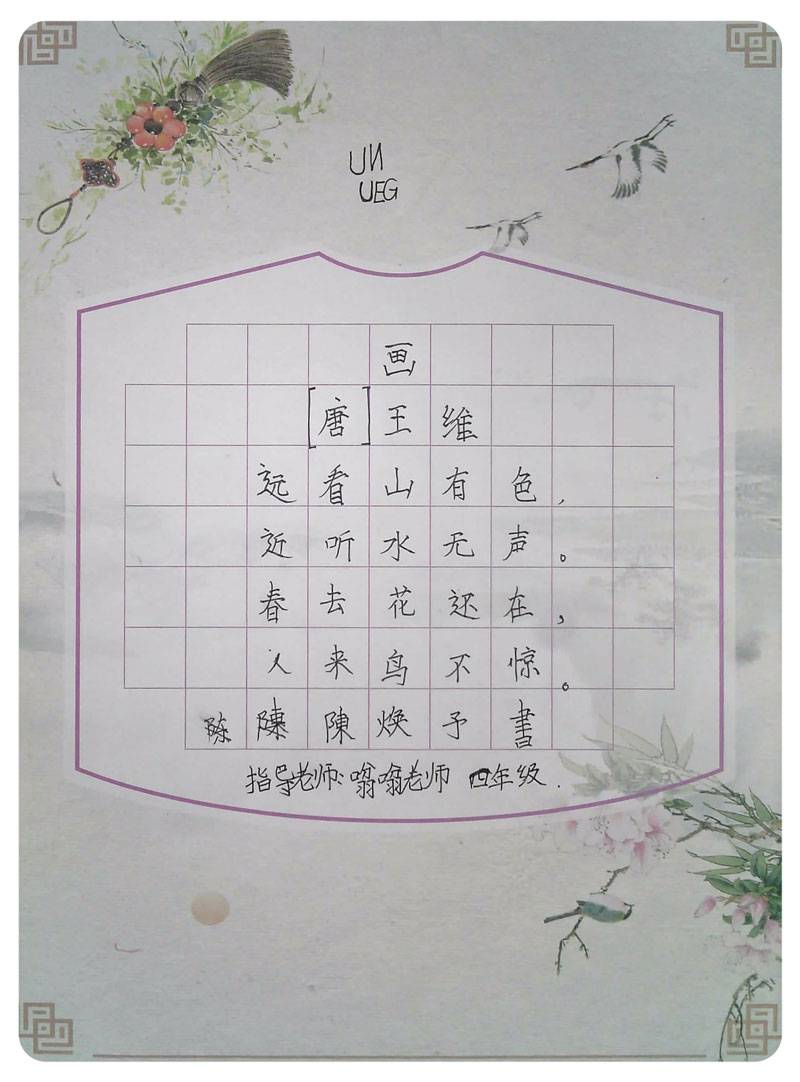 UN
UEG
画
[唐]王维
远看山有色,
近听水无声。
春去花还在,
人来鸟不惊。
陈陳陳焕予書
指导老师:嗡嗡老师 四年级.